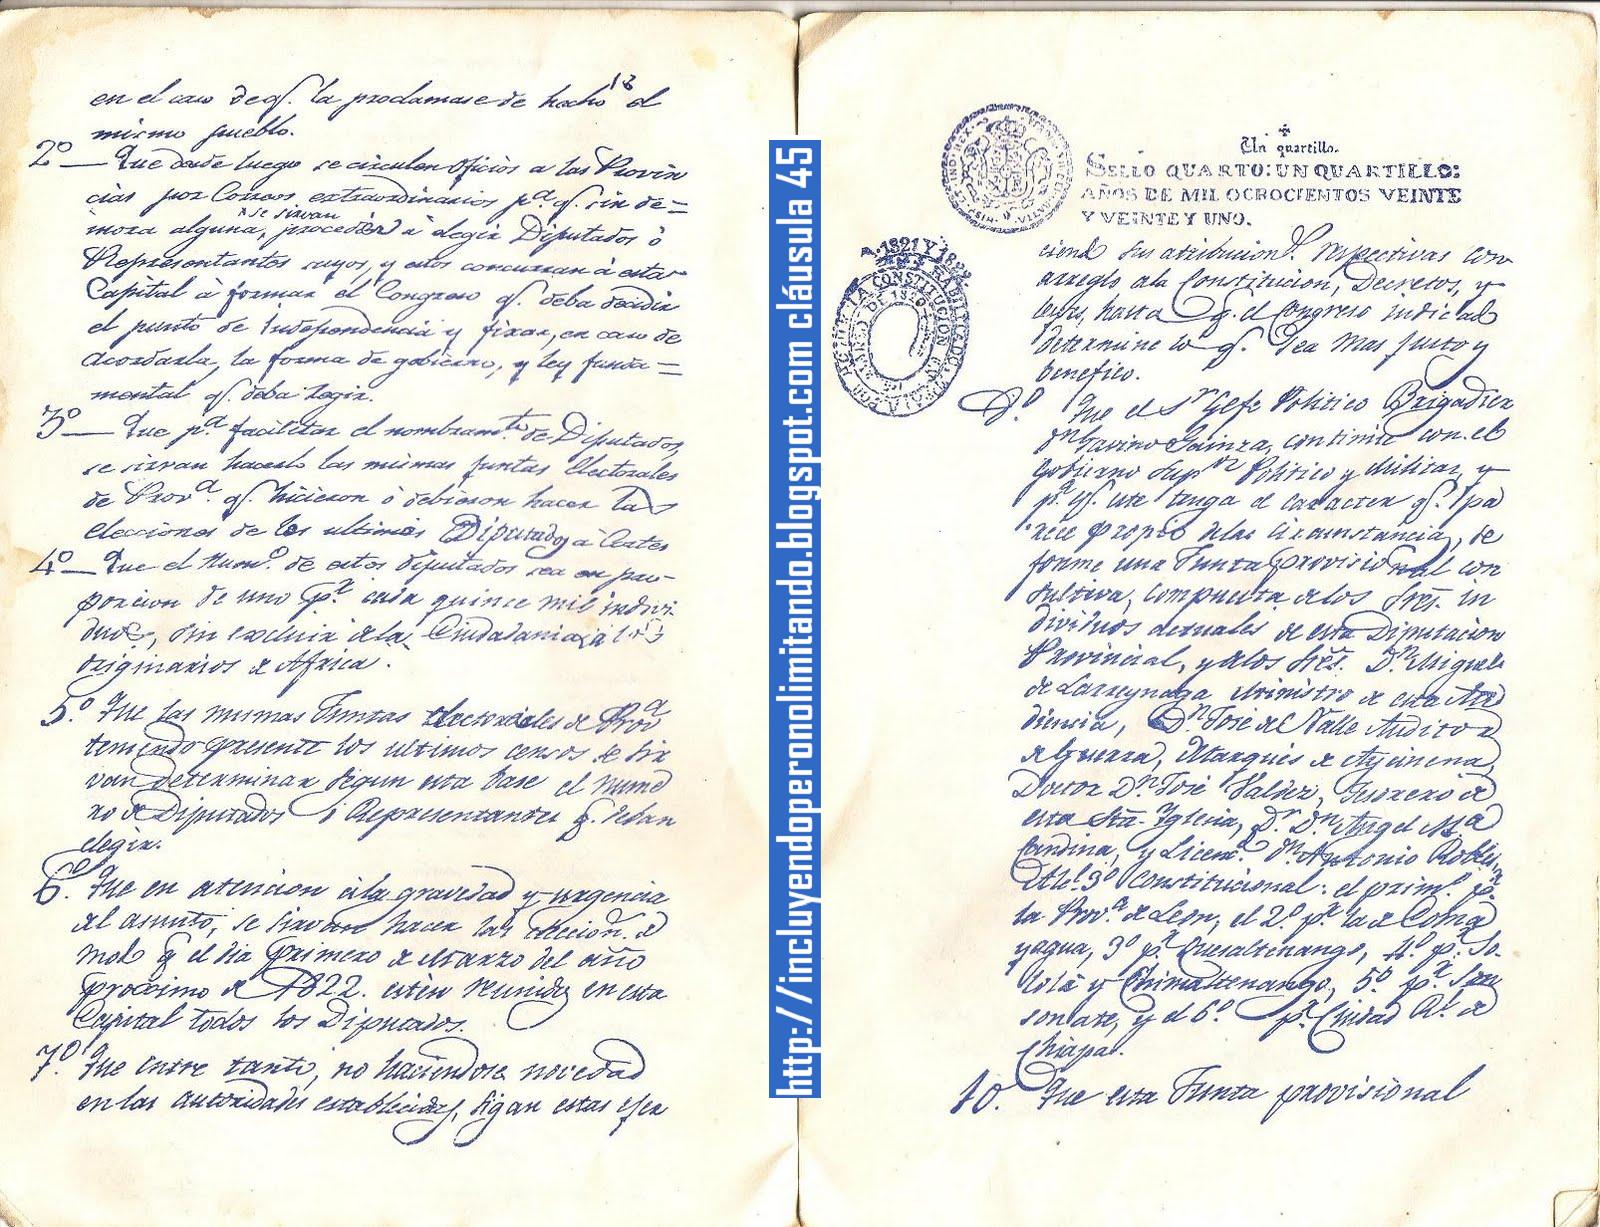 en el caso de q.^ la proclamase de hecho el
mismo pueblo.
2º — Que desde luego se circulen oficios a las Provin
cias por Correos extraordinarios p.ª q.^ sin de=
mora alguna, se sirvan proceder á elegir Diputados ó
Representantes suyos, y estos concurran á esta
Capital á formar el Congreso q.^ deba decidir
el punto de Independencia y fixar, en caso de
acordarla, la forma de gobierno, y ley funda=
mental q.^ deba regir.
3º — Que p.ª facilitar el nombram.to de Diputados,
se sirvan hacerlo las mismas juntas Electorales
de Prov.ª q.^ hicieron ó debieron hacer las
elecciones de los ultimos Diputados á Cortes
4º — Que el num.º de estos diputados sea en pro-
porcion de uno p.r cada quince mil indivi
duos, sin excluir de la Ciudadania á los
originarios de Africa.
5.º Que las mismas Juntas electorales de Prov.ª
teniendo presente los ultimos censos se sir
van determinar segun esta base el nume
ro de Diputados ó Representantes q. deban
elegir.
6.º Que en atencion á la gravedad y urgencia
del asunto, se sirvan hacer las eleccion.s de
modo q.e el dia primero de Marzo del año
proximo de 1822. estén reunidos en esta
Capital todos los Diputados.
7.º Que entre tanto, no haciendose novedad
en las autoridades establecidas, sigan estas ejer
http://incluyendoperonolimitando.blogspot.com cláusula 45
Un quartillo.
SELLO QUARTO: UN QUARTILLO:
AÑOS DE MIL OCROCIENTOS VEINTE
Y VEINTE Y UNO.
1821 Y 1822
ciendo sus atribucion.s respectivas con
arreglo a la Constitucion, Decretos, y
leyes, hasta q. el Congreso indicado
determine lo q.^ sea mas justo y
benefico.
Que el S.r Gefe Politico Brigadier
D.n Gavino Gainza, continúe con el
Gobierno Sup.or Politico y Militar, y
p.ª q.^ este tenga el caracter q.^ pa
rece propio de las circunstancias, se
forme una Junta provisional con
sultiva, compuesta de los Sres. in
dividuos actuales de esta Diputacion
Provincial, y de los Sres. D.n Miguel
de Larreynaga Ministro de esta Au
diencia, D.n José del Valle Auditor
de Guerra, Marqués de Aycinena,
Doctor D.n José Valdez, Tesorero de
esta Sta. Iglesia, D.r D.n Angel M.ª
Candina, y Licenc.º D.n Antonio Robles,
Alc.e 3º Constitucional: el prim.º p.r
la Prov.ª de Leon, el 2.º p.r la de Coma
yagua, 3º p.r Quesaltenango, 4.º p.r So-
lolá y Chimaltenango, 5.º p.r Son
sonate, y el 6.º p.r Ciudad R.l de
Chiapa.
10. Que esta Junta provisional